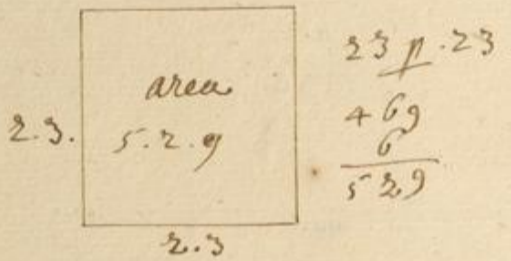 area
5.2.9
2.3.
2.3
23 p. 23
469
6
529